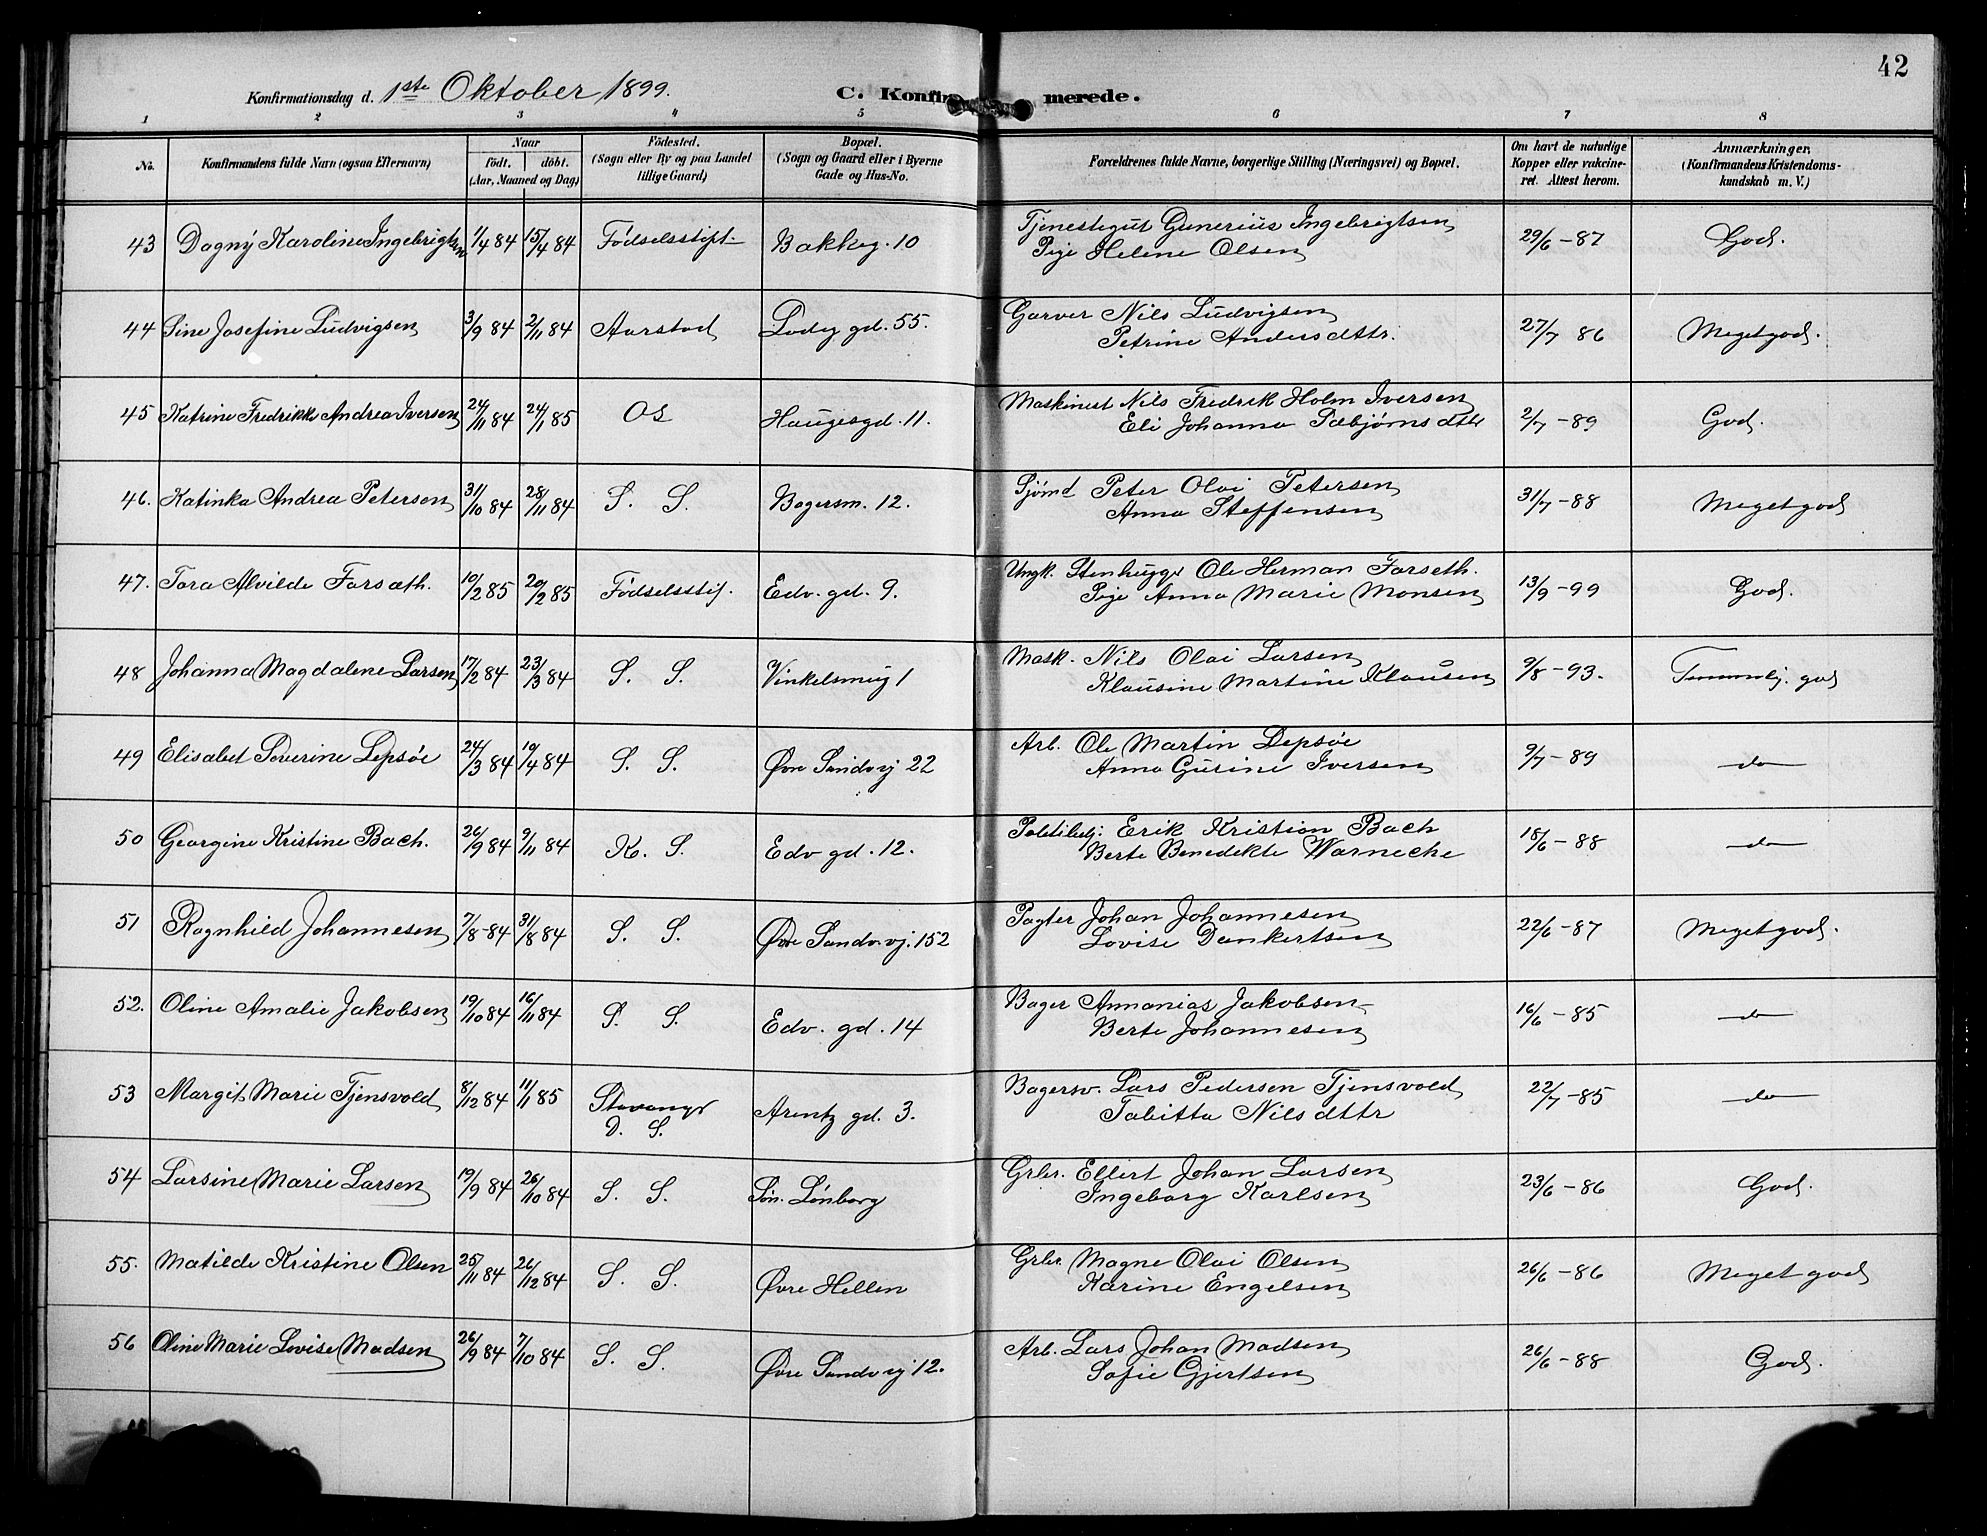 42
Konfirmationsdag d. 1ste Oktober 1899.
C. Konfirmerede.
1 2 3 4 5 6 7 8
No.
Konfirmandens fulde Navn (ogsaa Efternavn)
Naar
født. døbt.
(Aar, Maaned og Dag)
Fødested.
(Sogn eller By og paa Landet
tillige Gaard)
Bopæl.
(Sogn og Gaard eller i Byerne
Gade og Hus-No.
Forældrenes fulde Navne, borgerlige Stilling (Næringsvei) og Bopæl.
Om havt de naturlige
Kopper eller vakcine-
ret. Attest herom.
Anmærkninger.
(Konfirmandens Kristendoms-
kundskab m. V.)
43 Dagny Karoline Ingebrigtsen 1/4 84 15/4 84 Fødselsstift. Bakkeg. 10 Tjenestegut Gunerius Ingebrigtsen 29/6 - 87 God.
Pige Helene Olsen
44 Sine Josefine Ludvigsen 3/9 84 2/11 84 Aarstad Ladeg gd. 55. Garver Nils Ludvigsen 27/7 86 Meget god.
Petrine Andersdttr.
45 Katrine Fredrikke Andrea Iversen 24/11 84 24/1 85 Os Haugesgd. 11. Maskinist Nils Fredrik Holm Iversen 2/7 - 89 God.
Eli Johanna Pæbjørnsdttr
46. Katinka Andrea Petersen 31/10 84 28/11 84 S. S. Bagersm. 12. Sjømd Peter Olai Petersen 31/7 - 88 Meget god
Anna Steffensen
47. Tora Alvilde Forsæth. 10/2 85 20/2 85 Fødselsstif. Edv. gd. 9. Ungk. Stenhugger Ole Herman Forseth. 13/9 - 99 God.
Pige Anna Marie Monsen
48 Johanna Magdalene Larsen 17/2 84 23/3 84 S. S. Vinkelsmug 1 Mask. Nils Olai Larsen 9/8 - 93. Temmelig. god
Klausine Martine Klausen
49 Elisabet Severine Lepsøe 24/3 84 19/4 84 S. S. Øvre Sandvj 22 Arb. Ole Martin Lepsøe 9/7 - 89 do
Anna Gurine Iversen
50 Georgine Kristine Bach. 26/9 84 9/11 84 K. S. Edv gd. 12. Politibetj: Erik Kristian Bach 18/6 - 88 do
Berte Benedikte Warneche
51 Ragnhild Johannesen 7/8 - 84 31/8 84 S. S. Øvre Sandv.vj. 152 Pagter Johan Johannesen 22/6 - 87 Meget god.
Lovise Dankertsen
52. Oline Amalie Jakobsen 19/10 84 16/11 84 S. S. Edv. gd. 14 Bager Annanias Jakobsen 16/6 - 85 do
Berte Johannesen
53 Margit Marie Tjensvold 8/12 84 11/1 85 Stavanger Arentz gd. 3. Bagersv. Lars Pedersen Tjensvold 22/7 - 85 do
D. S. Tabitta Nilsdttr
54 Larsine Marie Larsen 19/9 84 26/10 84 S. S. Søn. Lønborg Grbr. Ellert Johan Larsen 23/6 - 86 God.
Ingeborg Karlsen
55. Matilde Kristine Olsen 25/11 84 26/12 84 S. S. Øvre Hellen Grbr. Magne Olai Olsen 26/6 - 86 Meget god
Karine Engelsen
56 Oline Marie Lovise Madsen 26/9 84 7/10 84 S. S. Øvre Sandvj 12. Arb. Lars Johan Madsen 26/6 - 88 God.
Sofie Gjertsen